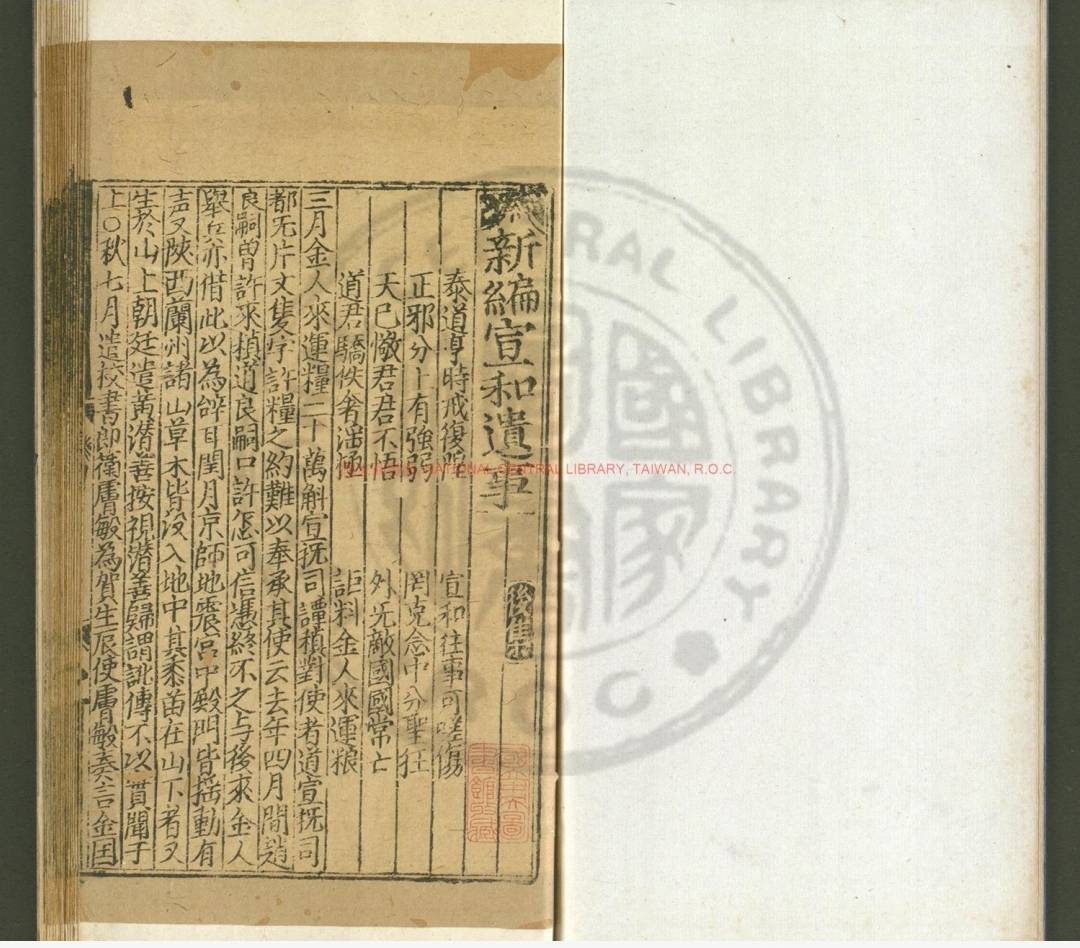 新編宣和遺事 後集
泰道亨時戒復隍 宣和往事可嗟傷
正邪分上有強弱 罔克念中分聖狂
天已儆君君不悟 外无敵國國常亡
道君驕佚奢淫極 詎料金人來運粮
三月金人來運糧二十萬斛宣抚司譚稹對使者道宣抚司
都无片文隻字許糧之約難以奉承其使云去年四月間趙
良嗣曾許來稹道良嗣口許怎可信憑終不之与後來金人
舉兵亦借此以為辞耳閏月京師地震宮中殿門皆搖動有
声又陝西蘭州諸山草木皆没入地中其黍苗在山下者又
生於山上朝廷遣黃潛善按視潛善歸謂訛傳不以實聞于
上〇秋七月遣校書郎衛膚敏為賀生辰使膚敏奏言金国
NATIONAL CENTRAL LIBRARY, TAIWAN, R.O.C
CENTRAL LIBRARY
R.O.C